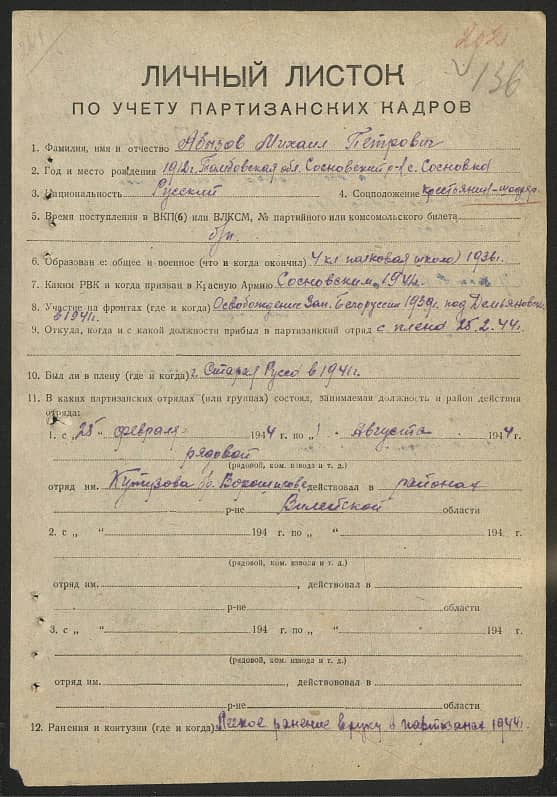 136
ЛИЧНЫЙ ЛИСТОК
ПО УЧЕТУ ПАРТИЗАНСКИХ КАДРОВ
1. Фамилия, имя и отчество Абызов Михаил Петрович
2. Год и место рождения 1912г. Тамбовская обл. Сосновский р-н с. Сосновка
3. Национальность Русский 4. Соцположение крестьянин-
5. Время поступления в ВКП(б) или ВЛКСМ, № партийного или комсомольского билета
б/п.
6. Образован е: общее и военное (что и когда окончил) 4 кл полковая школа 1936г.
7. Каким РВК и когда призван в Красную Армию Сосновским 1941г.
8. Участие на фронтах (где и когда) Освобождение Зап. Белоруссии 1939г. под
в 1941г.
9. Откуда, когда и с какой должности прибыл в партизанкий отряд с плена 25.2.44г.
10. Был ли в плену (где и когда) г. Старая Русса в 1941г.
11. В каких партизанских отрядах (или группах) состоял, занимаемая должность и район действия
отряда:
1. с „25" февраля 1944 г. по „1" Августа 1944 г.
рядовой
(рядовой, ком. взвода и т. д.)
отряд им. Кутузова бр. Ворошилова действовал в районах
р-не Вилейской области
2. с „ " 194 г. по „ " 194 г.
(рядовой, ком. взвода и т. д.)
отряд им. , действовал в
р-не области
3. с „ " 194 г. по „ " 194 г.
(рядовой, ком. взвода и т. д.)
отряд им. , действовал в
р-не области
12. Ранения и контузии (где и когда) Легкое ранение в руку в партизанах 1944г.